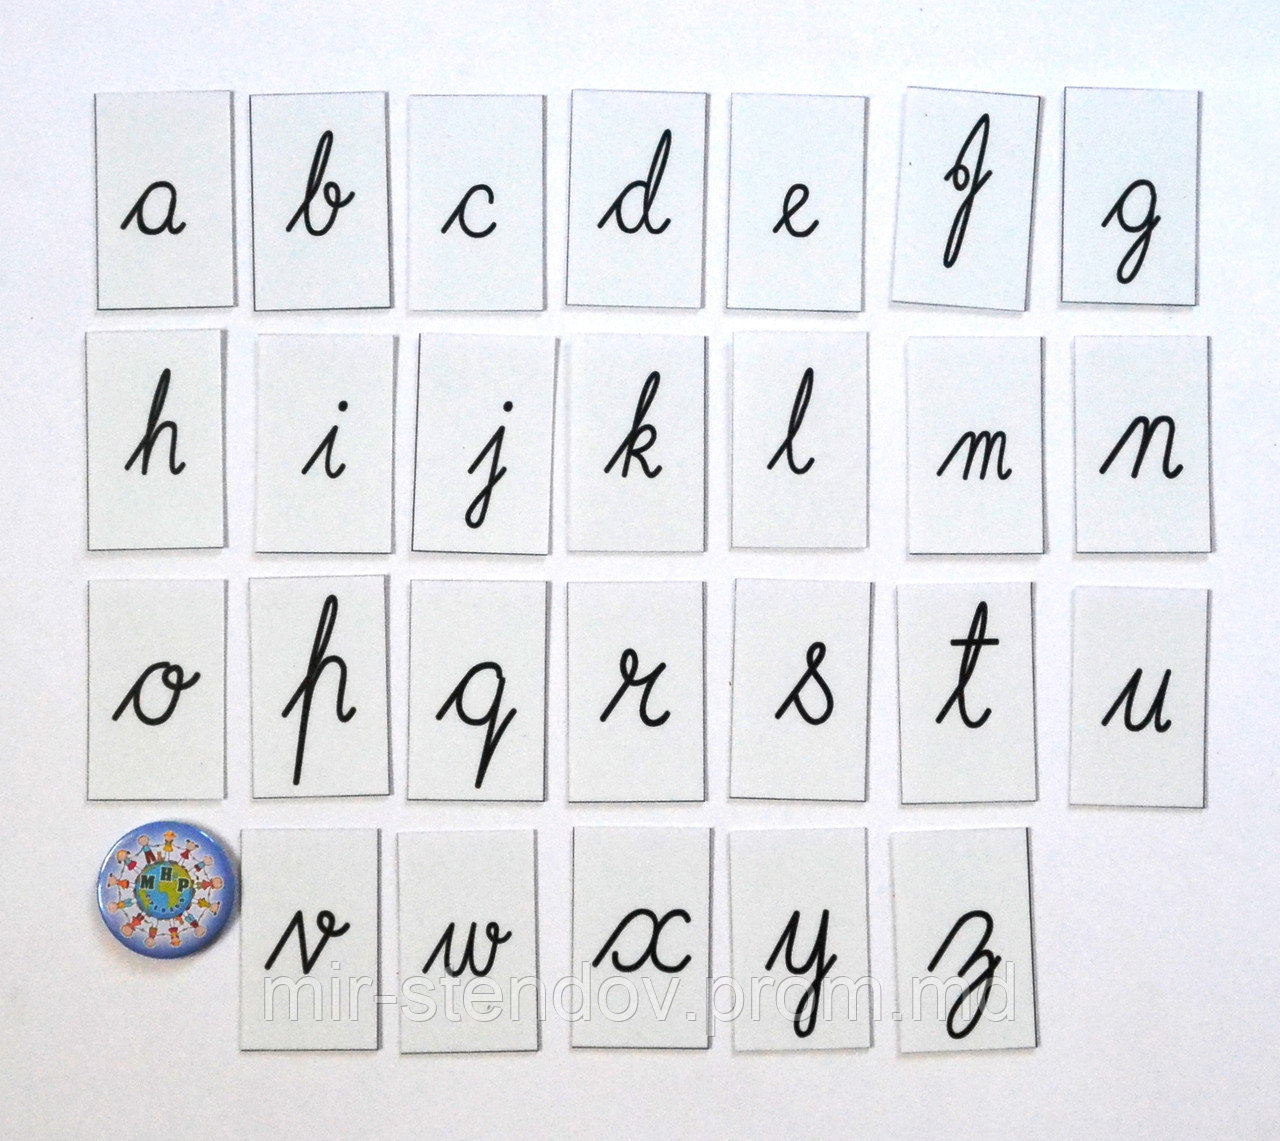 a b c d e f g
h i j k l m n
o p q r s t u
МИР
v w x y z
mir-stendov.prom.md